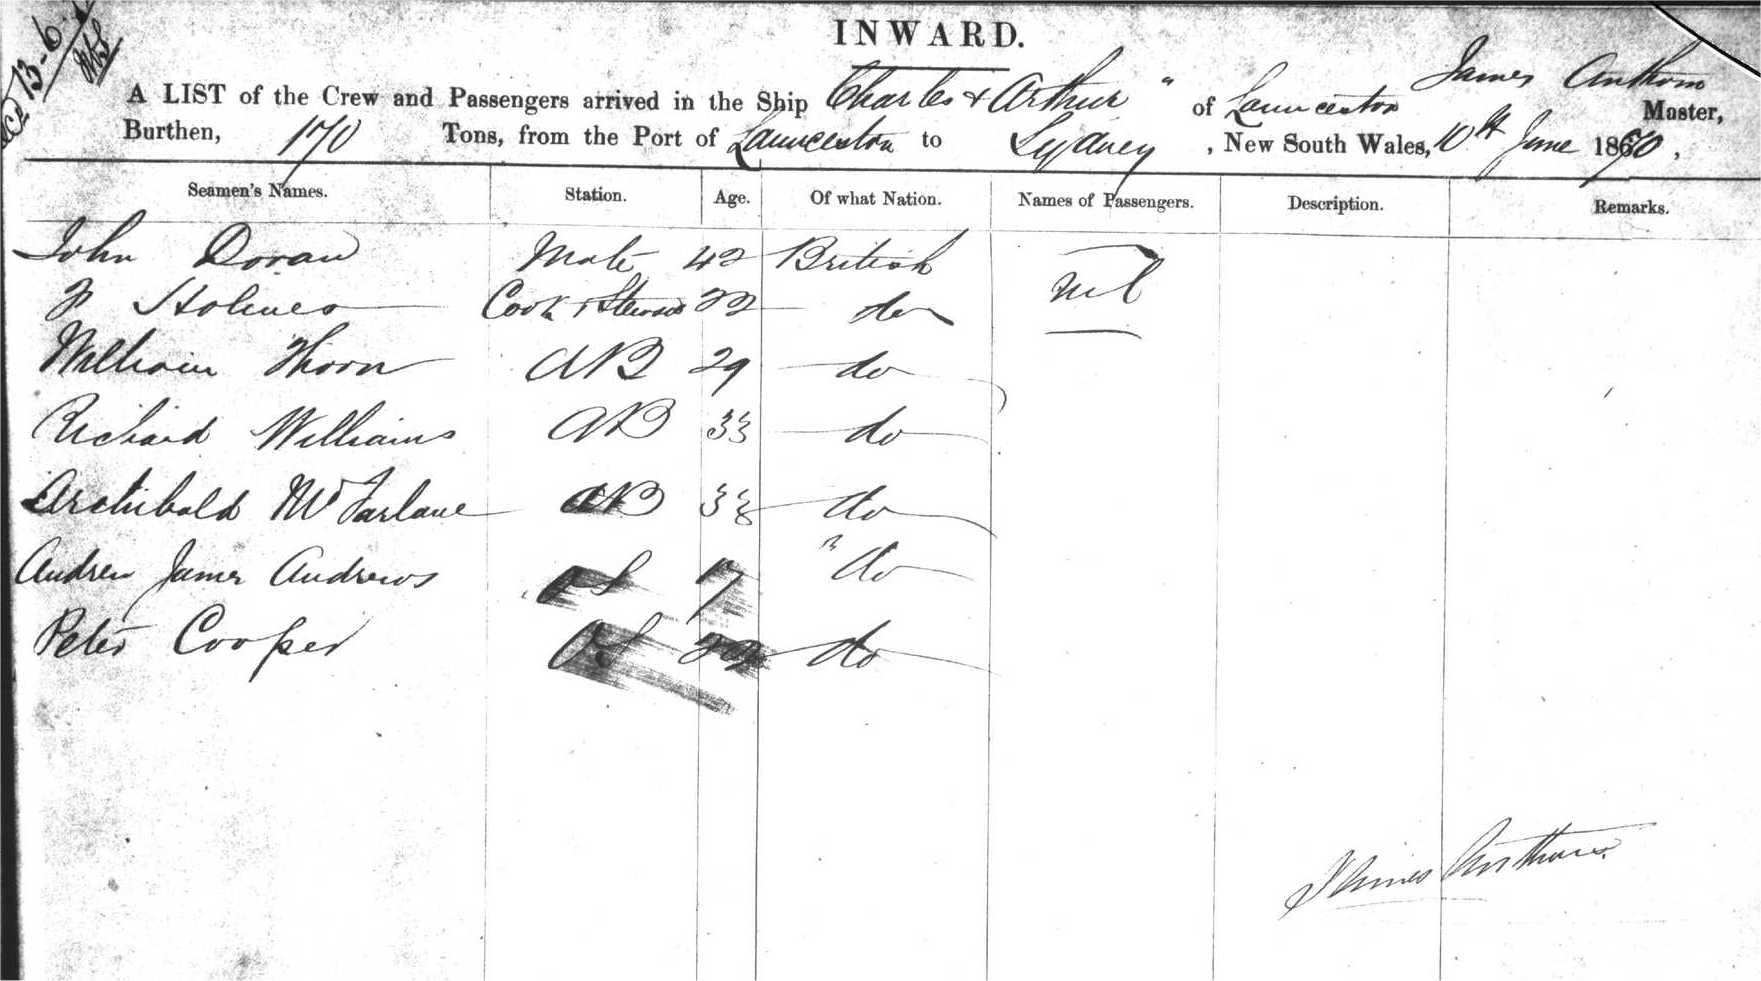 13-6
INWARD.
James Anthom
A LIST of the Crew and Passengers arrived in the Ship Charles & Arthur " of Launceston Master,
Burthen, 170 Tons, from the Port of Launceston to Sydney , New South Wales, 10th June 1870 ,
Seamen's Names. Station. Age. Of what Nation. Names of Passengers. Description. Remarks.
John Doran Mate 42 British nil
Holmes Cook & Steward 22 do
William Thorn AB 29 do
Richard Williams AB 33 do
Archibald McFarlane AB 33 do
Andrew James Andrews OS 17 " do
Peter Cooper OS 22 do
James